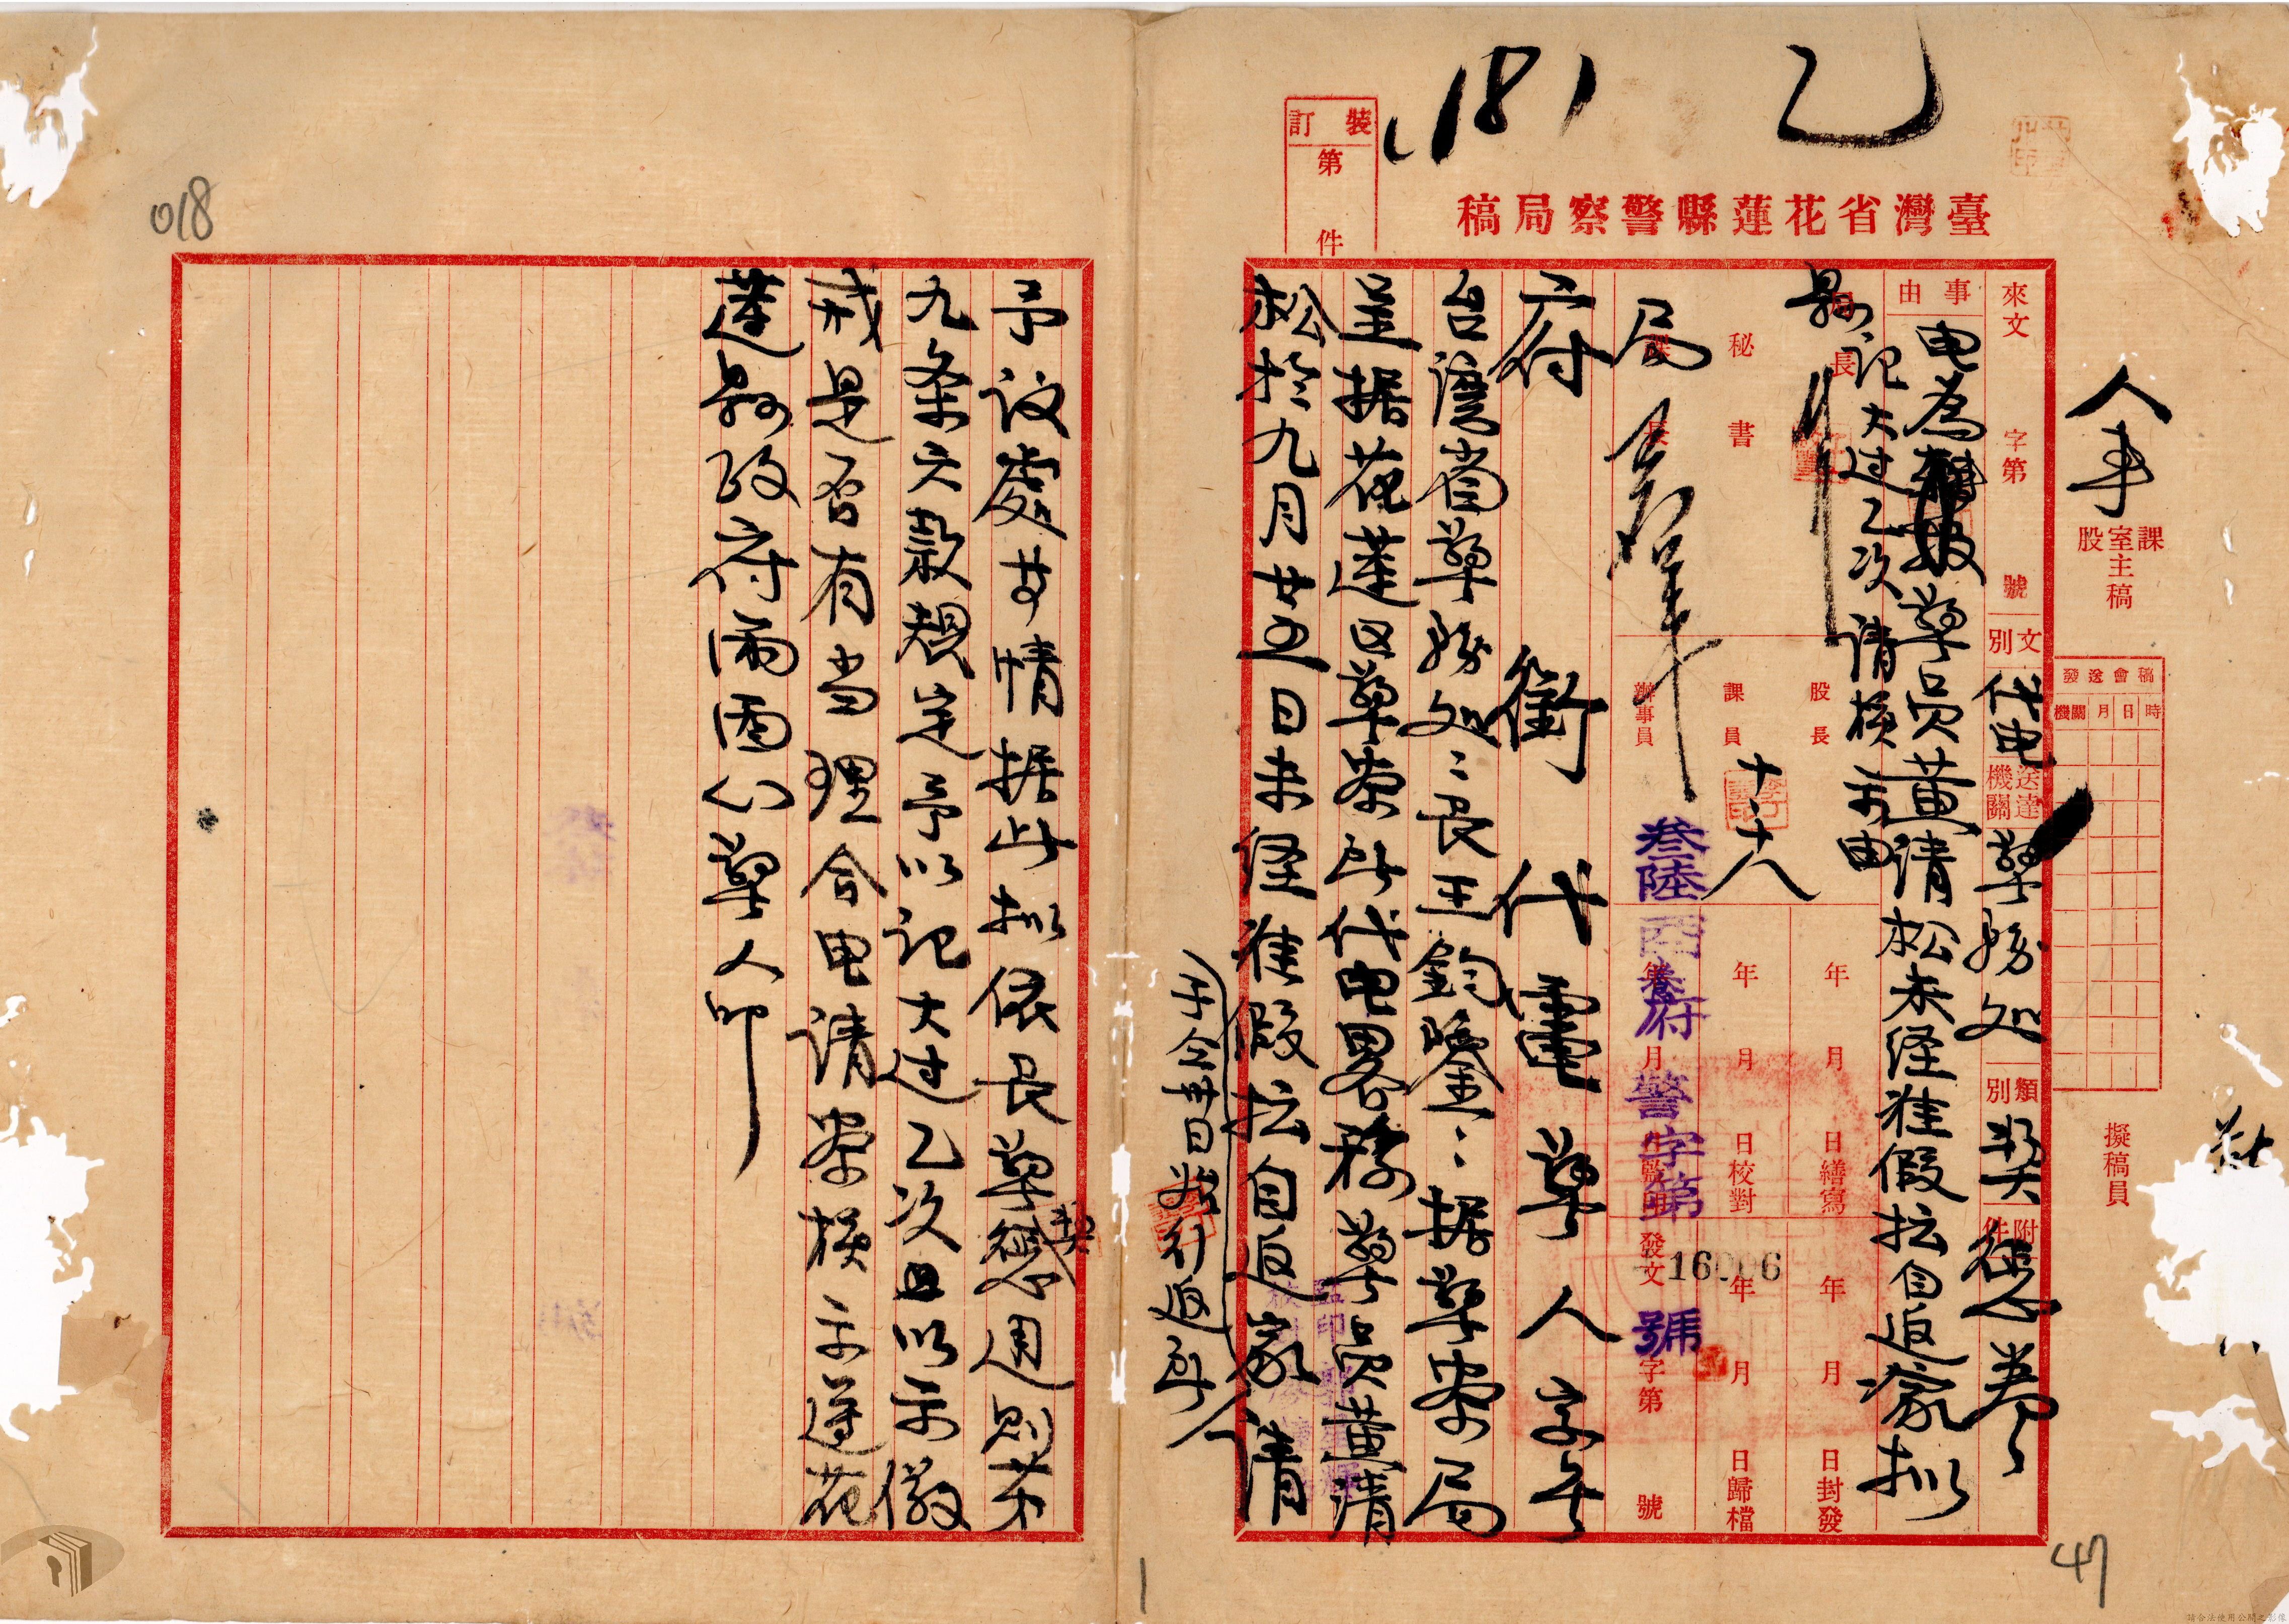 乙
181
裝訂
第　件
臺灣省花蓮縣警察局稿
人事
課室主稿
股
稿會送發
時日月機關
擬稿員
來文　字第　號
文別
代电
送達機關
警務处
類別
奬懲
附件
事由
电為警員黃清松未経准假拉自返家拟
記大过乙次请核示由
縣長
局長
秘書
課長
股長
課員
辦事員
十、十八
年　月　日繕寫
年　月　日校對
年　月　日監印
年　月　日封發
年　月　日歸檔
發文　字第　號
叁陸
府
警字第
號
16006
府　銜代電警人字第
台湾省警務处处長王鈞鑒：据警察局
呈据花蓮区警察所代电畧稱警員黃清
松於九月廿五日未経准假拉自返家清
于全卅日始行返所
予议處廿情据此拟依長警奬懲通則第
九条六款規定予以记大过乙次以示儆
戒是否有当理合电请察核示遵花
蓮縣政府
警人印
018
47
1
請合法使用公開之影像